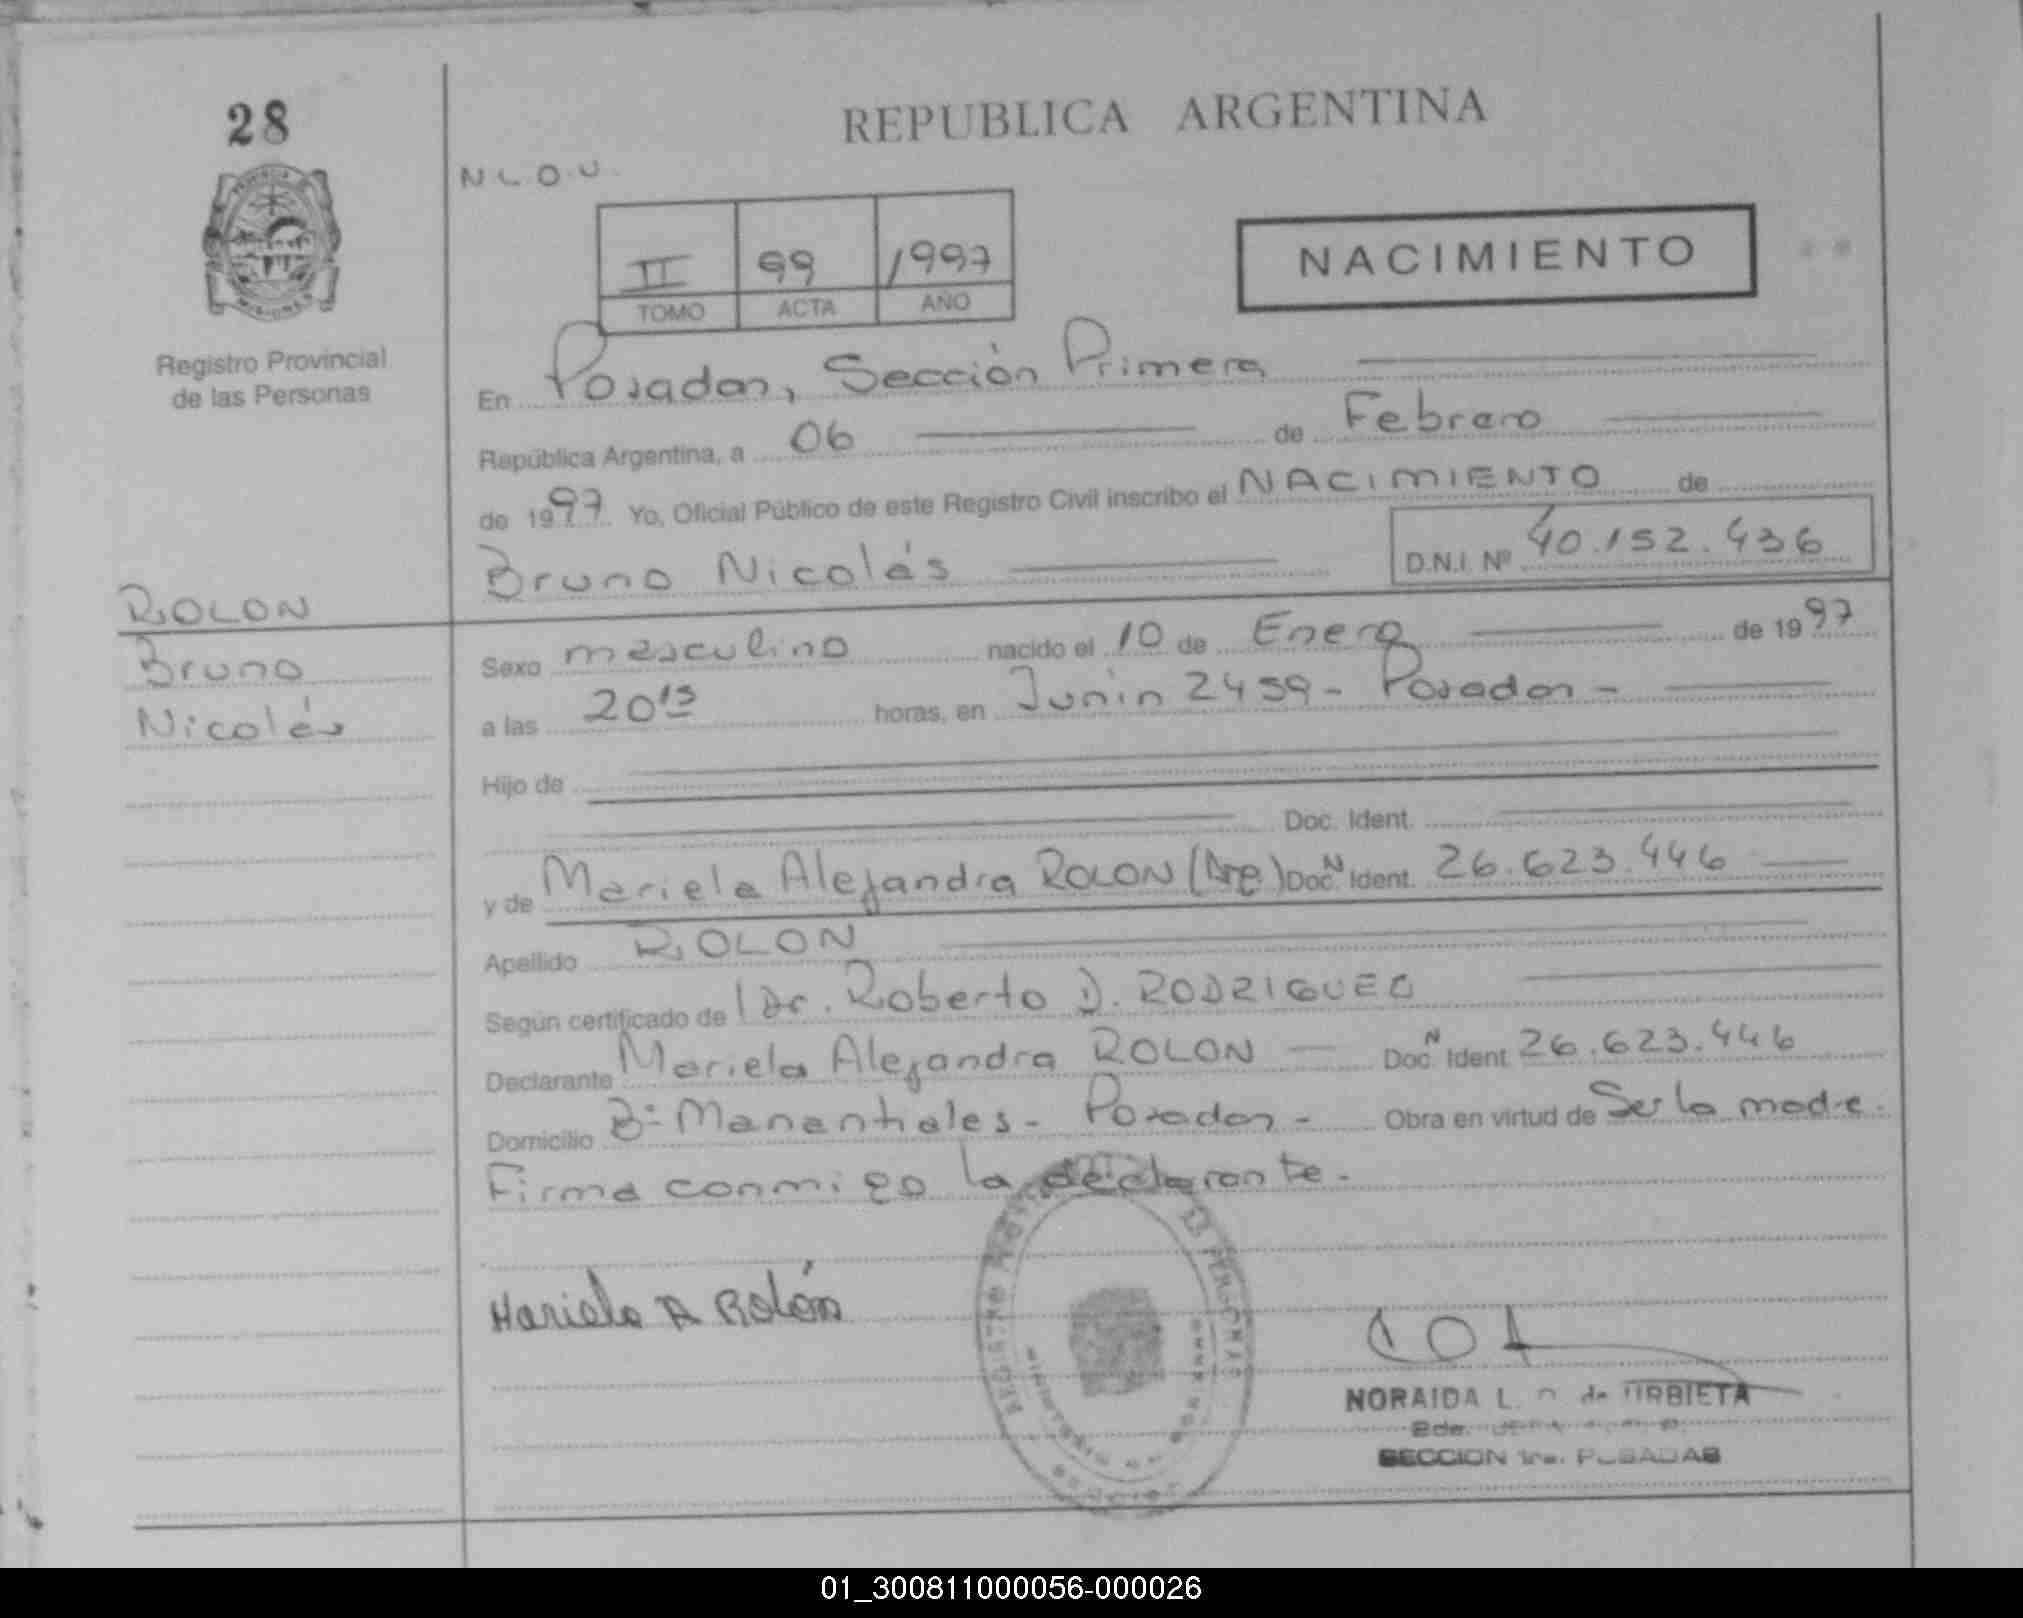 28
REPUBLICA ARGENTINA
N L. O. U.
II 99 1997
TOMO ACTA AÑO
NACIMIENTO
Registro Provincial
de las Personas
En Posadas, Sección Primera
República Argentina, a 06 de Febrero
de 1997 Yo, Oficial Público de este Registro Civil inscribo el NACIMIENTO de
Bruno Nicolás D.N.I. Nº 40.152.436
ROLON
Bruno
Nicolás
Sexo masculino nacido el 10 de Enero de 1997
a las 20 15 horas, en Junin 2459 - Posadas -
Hijo de
Doc. Ident.
y de Mariela Alejandra ROLON (Arg.) Doc. N Ident. 26.623.446
Apellido ROLON
Según certificado de Dr. Roberto D. RODRIGUEZ
Declarante Mariela Alejandra ROLON — Doc. N Ident 26.623.446
Domicilio Bº Manantiales - Posadas - Obra en virtud de Ser la madre.
Firma conmigo la declarante.-
Mariela A Rolón
NORAIDA L. de URBIETA
SECCION 1ra. POSADAS
01_300811000056-000026